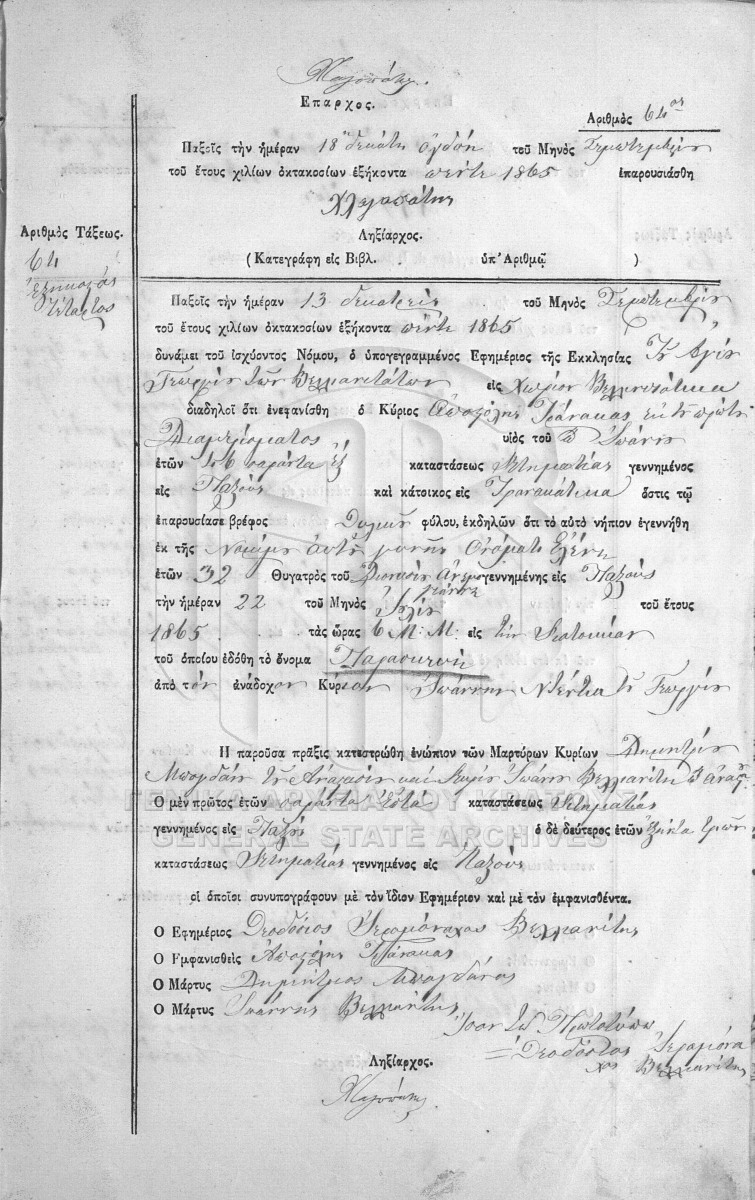 Ἔπαρχος.
Ἀριθμὸς 64ος
Παξοῖς τὴν ἡμέραν 18 δεκάτη ὀγδόη τοῦ Μηνὸς Σεμπτεμβρίου
τοῦ ἔτους χιλίων ὀκτακοσίων ἑξήκοντα πέντε 1865 ἐπαρουσιάσθη
Ἀριθμὸς Τάξεως.
64
ἑξηκοστὸς
τέταρτος
Ληξίαρχος.
(Κατεγράφη εἰς Βιβλ. ὑπ' Ἀριθμῷ )
Παξοῖς τὴν ἡμέραν 13 δεκατρεῖς τοῦ Μηνὸς Σεμπτεμβρίου
τοῦ ἔτους χιλίων ὀκτακοσίων ἑξήκοντα πέντε 1865
δυνάμει τοῦ ἰσχύοντος Νόμου, ὁ ὑπογεγραμμένος Ἐφημέριος τῆς Ἐκκλησίας τοῦ Ἁγίου
Γεωργίου τῶν Βελλιανιτάτων εἰς Χωρίον Βελλιανιτάτικα
διαδηλοῖ ὅτι ἐνεφανίσθη ὁ Κύριος Ἀποστόλης Τζάνακας ἐκ τοῦ πρώτου
Διαμερίσματος υἱὸς τοῦ Ἰωάννου
ἐτῶν 46 σαράντα ἕξ καταστάσεως Κτηματίας γεννημένος
εἰς Παξοὺς καὶ κάτοικος εἰς Τζανακάτικα ὅστις τῷ
ἐπαρουσίασε βρέφος φύλου, ἐκδηλῶν ὅτι τὸ αὐτὸ νήπιον ἐγεννήθη
ἐκ τῆς Νομίμου αὐτοῦ Ὀνόματι Ἑλένη
ἐτῶν 32 Θυγατρὸς τοῦ γεννημένης εἰς Παξοὺς
τὴν ἡμέραν 22 τοῦ Μηνὸς Ἰουλίου τοῦ ἔτους
1865 τὰς ὥρας 6 Μ: Μ: εἰς τὴν κατοικίαν
τοῦ ὁποίου ἐδόθη τὸ ὄνομα Παρασκευὴ
ἀπὸ τὸν ἀνάδοχον Κύριον Ἰωάννην τοῦ Γεωργίου
Ἡ παροῦσα πρᾶξις κατεστρώθη ἐνώπιον τῶν Μαρτύρων Κυρίων Δημητρίου
Μπογδάνου τοῦ Ἀναστασίου καὶ Κυρίου Ἰωάννου Βελλιανίτη
Ὁ μὲν πρῶτος ἐτῶν σαράντα ἑπτὰ καταστάσεως Κτηματίας
γεννημένος εἰς Παξοὺς ὁ δὲ δεύτερος ἐτῶν ἑξῆντα τριῶν
καταστάσεως Κτηματίας γεννημένος εἰς Παξοὺς
οἱ ὁποῖοι συνυπογράφουν μὲ τὸν ἴδιον Ἐφημέριον καὶ μὲ τὸν ἐμφανισθέντα.
Ὁ Ἐφημέριος Θεοδόσιος Ἱερομόναχος Βελλιανίτης
Ὁ Ἐμφανισθεὶς Ἀποστόλης Τζάνακας
Ὁ Μάρτυς Δημήτριος Μπογδάνος
Ὁ Μάρτυς Ἰωάννης Βελλιανίτης
Ἴσον τῷ Πρωτοτύπῳ
Θεοδόσιος Ἱερομόνα
χος Βελλιανίτης
Ληξίαρχος.
ΓΕΝΙΚΑ ΑΡΧΕΙΑ ΤΟΥ ΚΡΑΤΟΥΣ
GENERAL STATE ARCHIVES